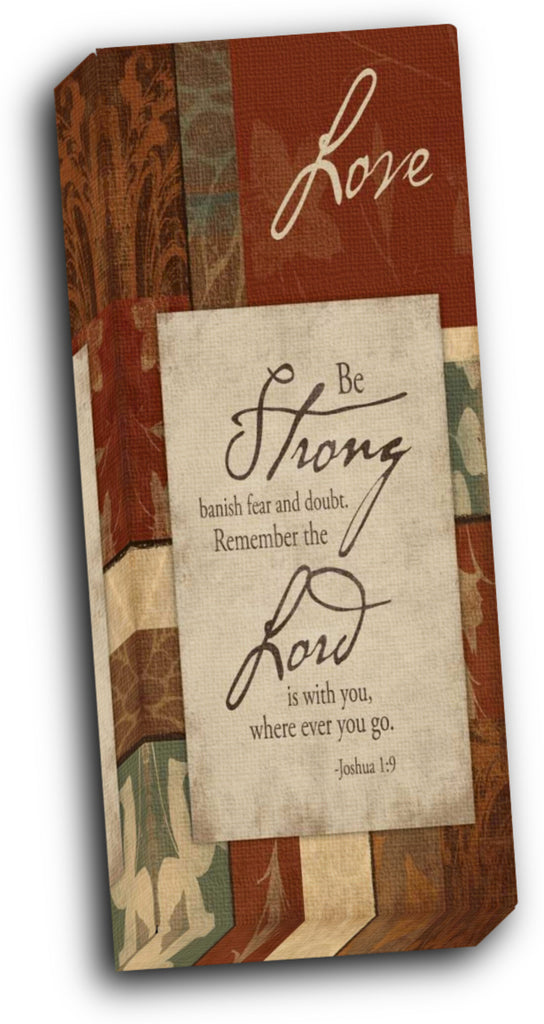 Love
Be
Strong
banish fear and doubt.
Remember the
Lord
is with you,
where ever you go.
-Joshua 1:9